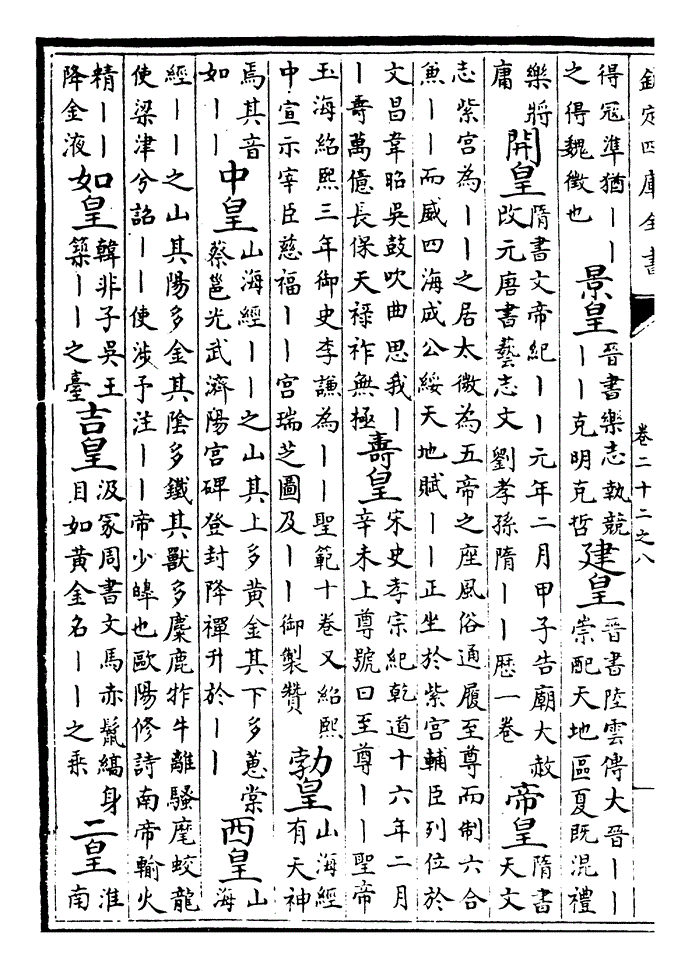 欽定四庫全書
卷二十二之八
得冦準猶丨丨
之得魏徵也
景皇
晉書樂志執競
丨丨克明克哲
建皇
晉書陸雲傳大晉丨丨
崇配天地區夏既混禮
樂將
庸
開皇
隋書文帝紀丨丨元年二月甲子告廟大赦
改元唐書藝志文劉孝孫隋丨丨厯一卷
帝皇
隋書
天文
志紫宫為丨丨之居太微為五帝之座風俗通履至尊而制六合
兼丨丨而威四海成公綏天地賦丨丨正坐於紫宫輔臣列位於
文昌韋昭吳鼓吹曲思我丨
丨壽萬億長保天祿祚無極
壽皇
宋史孝宗紀乾道十六年二月
辛未上尊號曰至尊丨丨聖帝
玉海紹熙三年御史李謙為丨丨聖範十卷又紹熙
中宣示宰臣慈福丨丨宫瑞芝圖及丨丨御製贊
勃皇
山海經
有天神
焉其音
如丨丨
中皇
山海經丨丨之山其上多黄金其下多蕙棠
蔡邕光武濟陽宫碑登封降禪升於丨丨
西皇
山
海
經丨丨之山其陽多金其隂多鐵其獸多麋鹿㸲牛離騷麾蛟龍
使梁津兮詔丨丨使涉予注丨丨帝少皞也歐陽修詩南帝輸火
精丨丨
降金液
如皇
韓非子吳王
築丨丨之臺
吉皇
汲冢周書文馬赤鬛縞身
目如黄金名丨丨之乘
二皇
淮
南